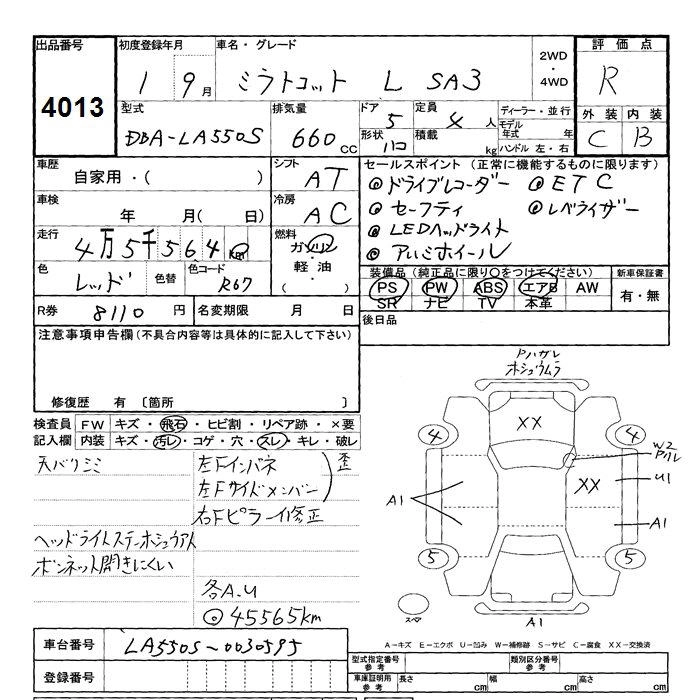 出品番号
4013
初度登録年月
1 9月
車名・グレード
ミラトコット L SA3
2WD
・
4WD
評価点
R
外装 内装
C B
型式
DBA-LA550S
排気量
660 CC
ドア
5
形状
ハコ
定員
4 人
積載
kg
ディーラー・並行
モデル年式 年
ハンドル 左・右
車歴
自家用・( )
シフト
AT
車検
年 月( 日)
冷房
AC
走行
4万5千564km
燃料
ガソリン
軽油・
( )
色
レッド
色替
色コード
R67
R券 8110 円
名変期限 月 日
セールスポイント (正常に機能するものに限ります)
◎ドライブレコーダー ◎ETC
◎セーフティ ◎レベライザー
◎LEDヘッドライト
◎アルミホイール
装備品 (純正品に限り○をつけてください)
PS PW ABS エアB AW
SR ナビ TV 本革
新車保証書
有・無
後日品
注意事項申告欄 (不具合内容等は具体的に記入して下さい)
修復歴 有 〔箇所 〕
検査員記入欄
FW キズ・飛石・ヒビ割・リペア跡・×要
内装 キズ・汚レ・コゲ・穴・スレ・キレ・破レ
天バリシミ
左Fインパネ
左Fサイドメンバー
歪
右Fピラー修正
ヘッドライトステーホシュウアト
ボンネット開きにくい
各A.U
◎45565km
Pハガレ
ホシュウムラ
XX
4
4
W2
Pハレ
U1
XX
A1
A1
5
5
スペア
A1
A-キズ E-エクボ U-凹み W-補修跡 S-サビ C-腐食 XX-交換済
車台番号 LA550S-0030595
登録番号
型式指定番号
参考
類別区分番号
参考
車庫証明用
参考
長さ cm
幅 cm
高さ cm